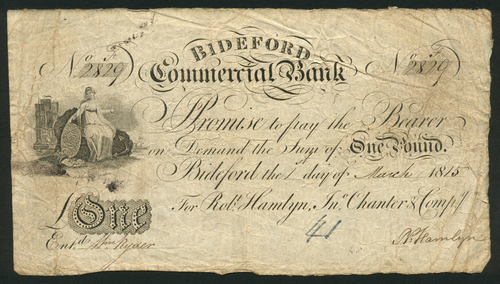 BIDEFORD
No 2829 Commercial Bank No 2829
I Promise to pay the Bearer
on Demand the Sum of One Pound.
Bideford the 1 day of March 1815
For Robt. Hamlyn, Jno. Chanter & Compy.
£ One
41
Entd. Wm Ryder
R. Hamlyn